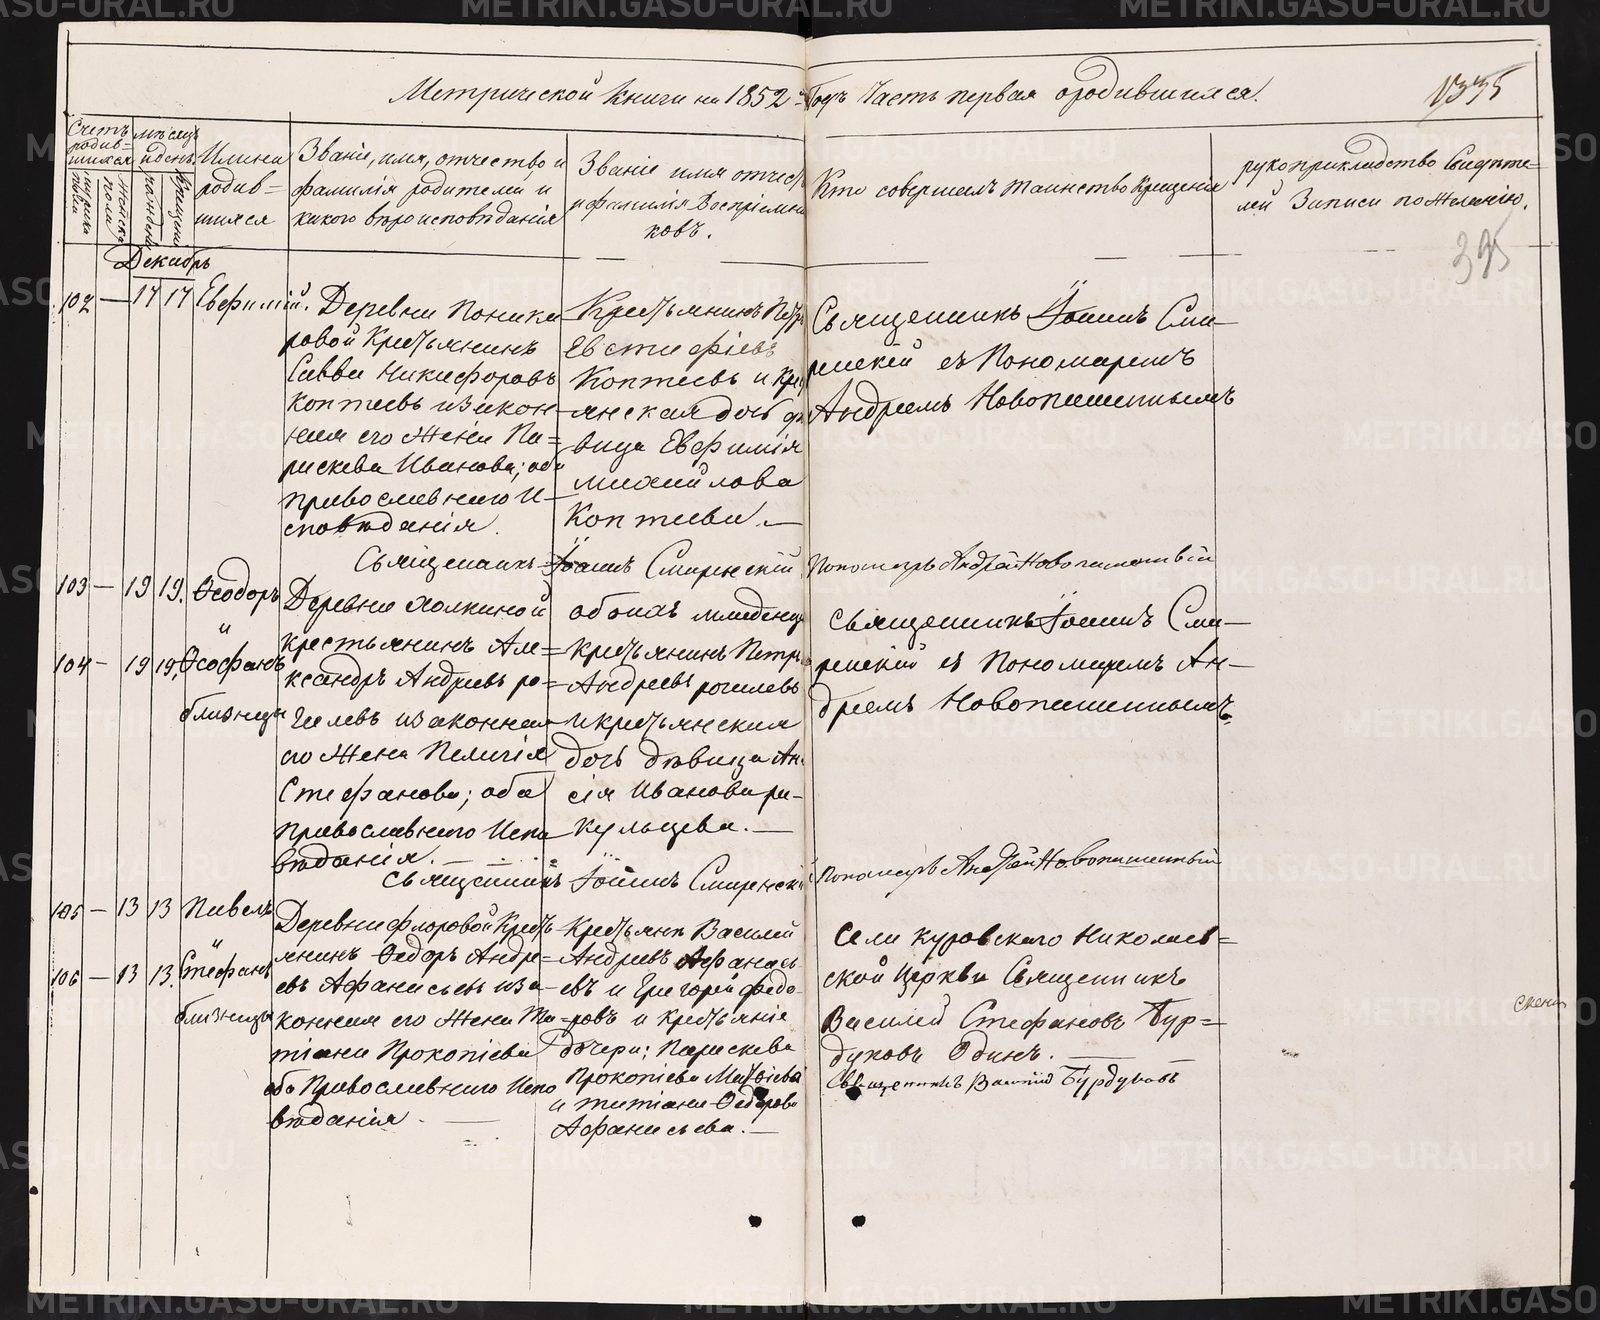 Метрической книги на 1852й Годъ Часть первая о родившихся.
1335
Счетъ родив=шихся
мѣсяцъ и день
Имена родив=шихся
Званіе, имя, отчество и
фамилія родителей и
какого вѣроисповѣданія
Званіе имя отчест
и фамилія Воспріемни
ковъ.
Кто совершалъ таинство Крещенія
рукоприкладство Свидѣте=
лей Записи по Желанію.
395
Декабрь
102 — 17 17 Евфимій.
Деревни Поника
ровой Крестьянинъ
Савва Никифоровъ
Коптевъ и закон=
ная его Жена Па=
раскева Иванова; оба
православнаго и—
сповѣданія.
Крестьянинъ Петръ
Евстафіевъ
Коптевъ и Крес
янская дочь дѣ
вица Евфимія
михайлова
Коптева. —
Священникъ Іоаннъ Сми—
ренскій съ Пономаремъ
Андреемъ Новопашеннымъ
Священникъ Іоаннъ Смиренскій Пономарь Андрей Новопашенный
103 — 19 19. Ѳеодоръ
и
104 — 19 19. Ѳеофанъ
близнецы
Деревни Холкиной
крестьянинъ Але=
ксандръ Андреевъ ро=
гилевъ и законная
его Жена Пелагія
Стефанова; оба
Православнаго Испо
вѣданія. —
обоихъ младенц
крестьянинъ Петръ
Андреевъ рогилевъ
и крестьянская
дочь дѣвица Ан
сія Иванова ра—
кульцева. —
Священникъ Іоаннъ Сми—
ренскій съ Пономаремъ Ан—
дреемъ Новопашеннымъ.
Священникъ Іоаннъ Смиренскій Пономарь Андрей Новопашенный
105 — 13 13 Павелъ
и
106 — 13 13. Стефанъ
близнецы
Деревни флоровой Крест
янинъ Ѳедоръ Андре=
евъ Афанасьевъ и за
конная его Жена Та=
тіана Прокопіева
оба Православнаго Испо
вѣданія. —
Крестьяне Василей
Андреевъ Афанась
евъ и Григорей федо
ровъ и крестьянскія
дочери; Параскева
Прокопіева Матвіева
и татіана Ѳедорова
Афанасьева. —
Села куровскаго Николаев=
ской Церкви Священникъ
Василей Стефановъ Бур=
дуковъ Одинъ. —
Священникъ Василій Бурдуковъ
METRIKI.GASO-URAL.RU